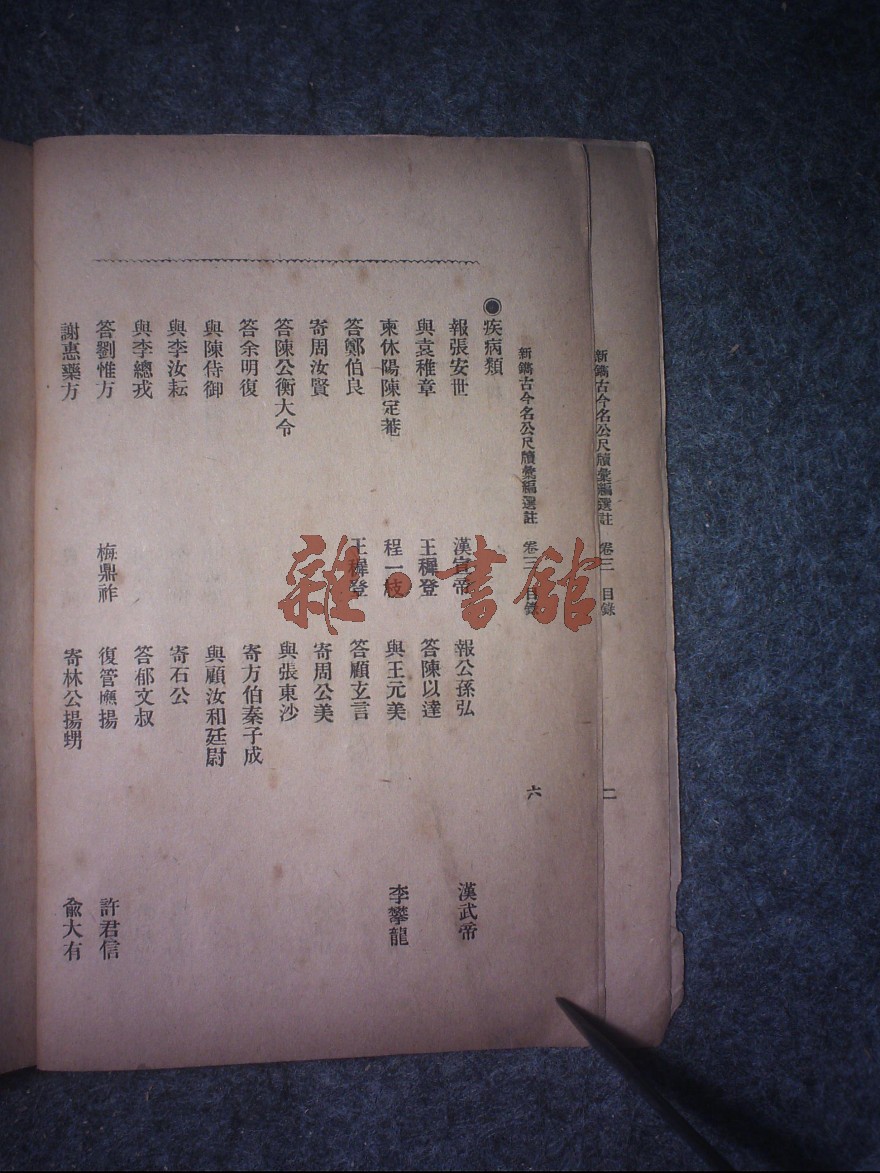 新鐫古今名公尺牘彙編選註 卷三 目錄 二
新鐫古今名公尺牘彙編選註 卷三 目錄 六
◉疾病類
報張安世 漢宣帝 報公孫弘 漢武帝
與袁稚章 王穉登 答陳以達
柬休陽陳定菴 程一枝 與王元美 李攀龍
答鄭伯良 王穉登 答顧玄言
寄周汝賢 寄周公美
答陳公衡大令 與張東沙
答余明復 寄方伯秦子成
與陳侍御 與顧汝和廷尉
與李汝耘 寄石公
與李總戎 答郁文叔
答劉惟方 梅鼎祚 復管應揚 許君信
謝惠藥方 寄林公揚甥 俞大有
雜·書館